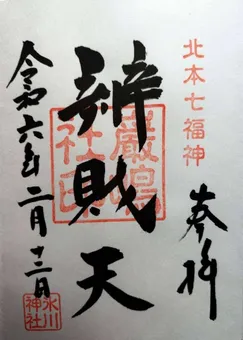 北本七福神
奉拝
辨財天
厳島社印
令和六年二月十二日
氷川神社